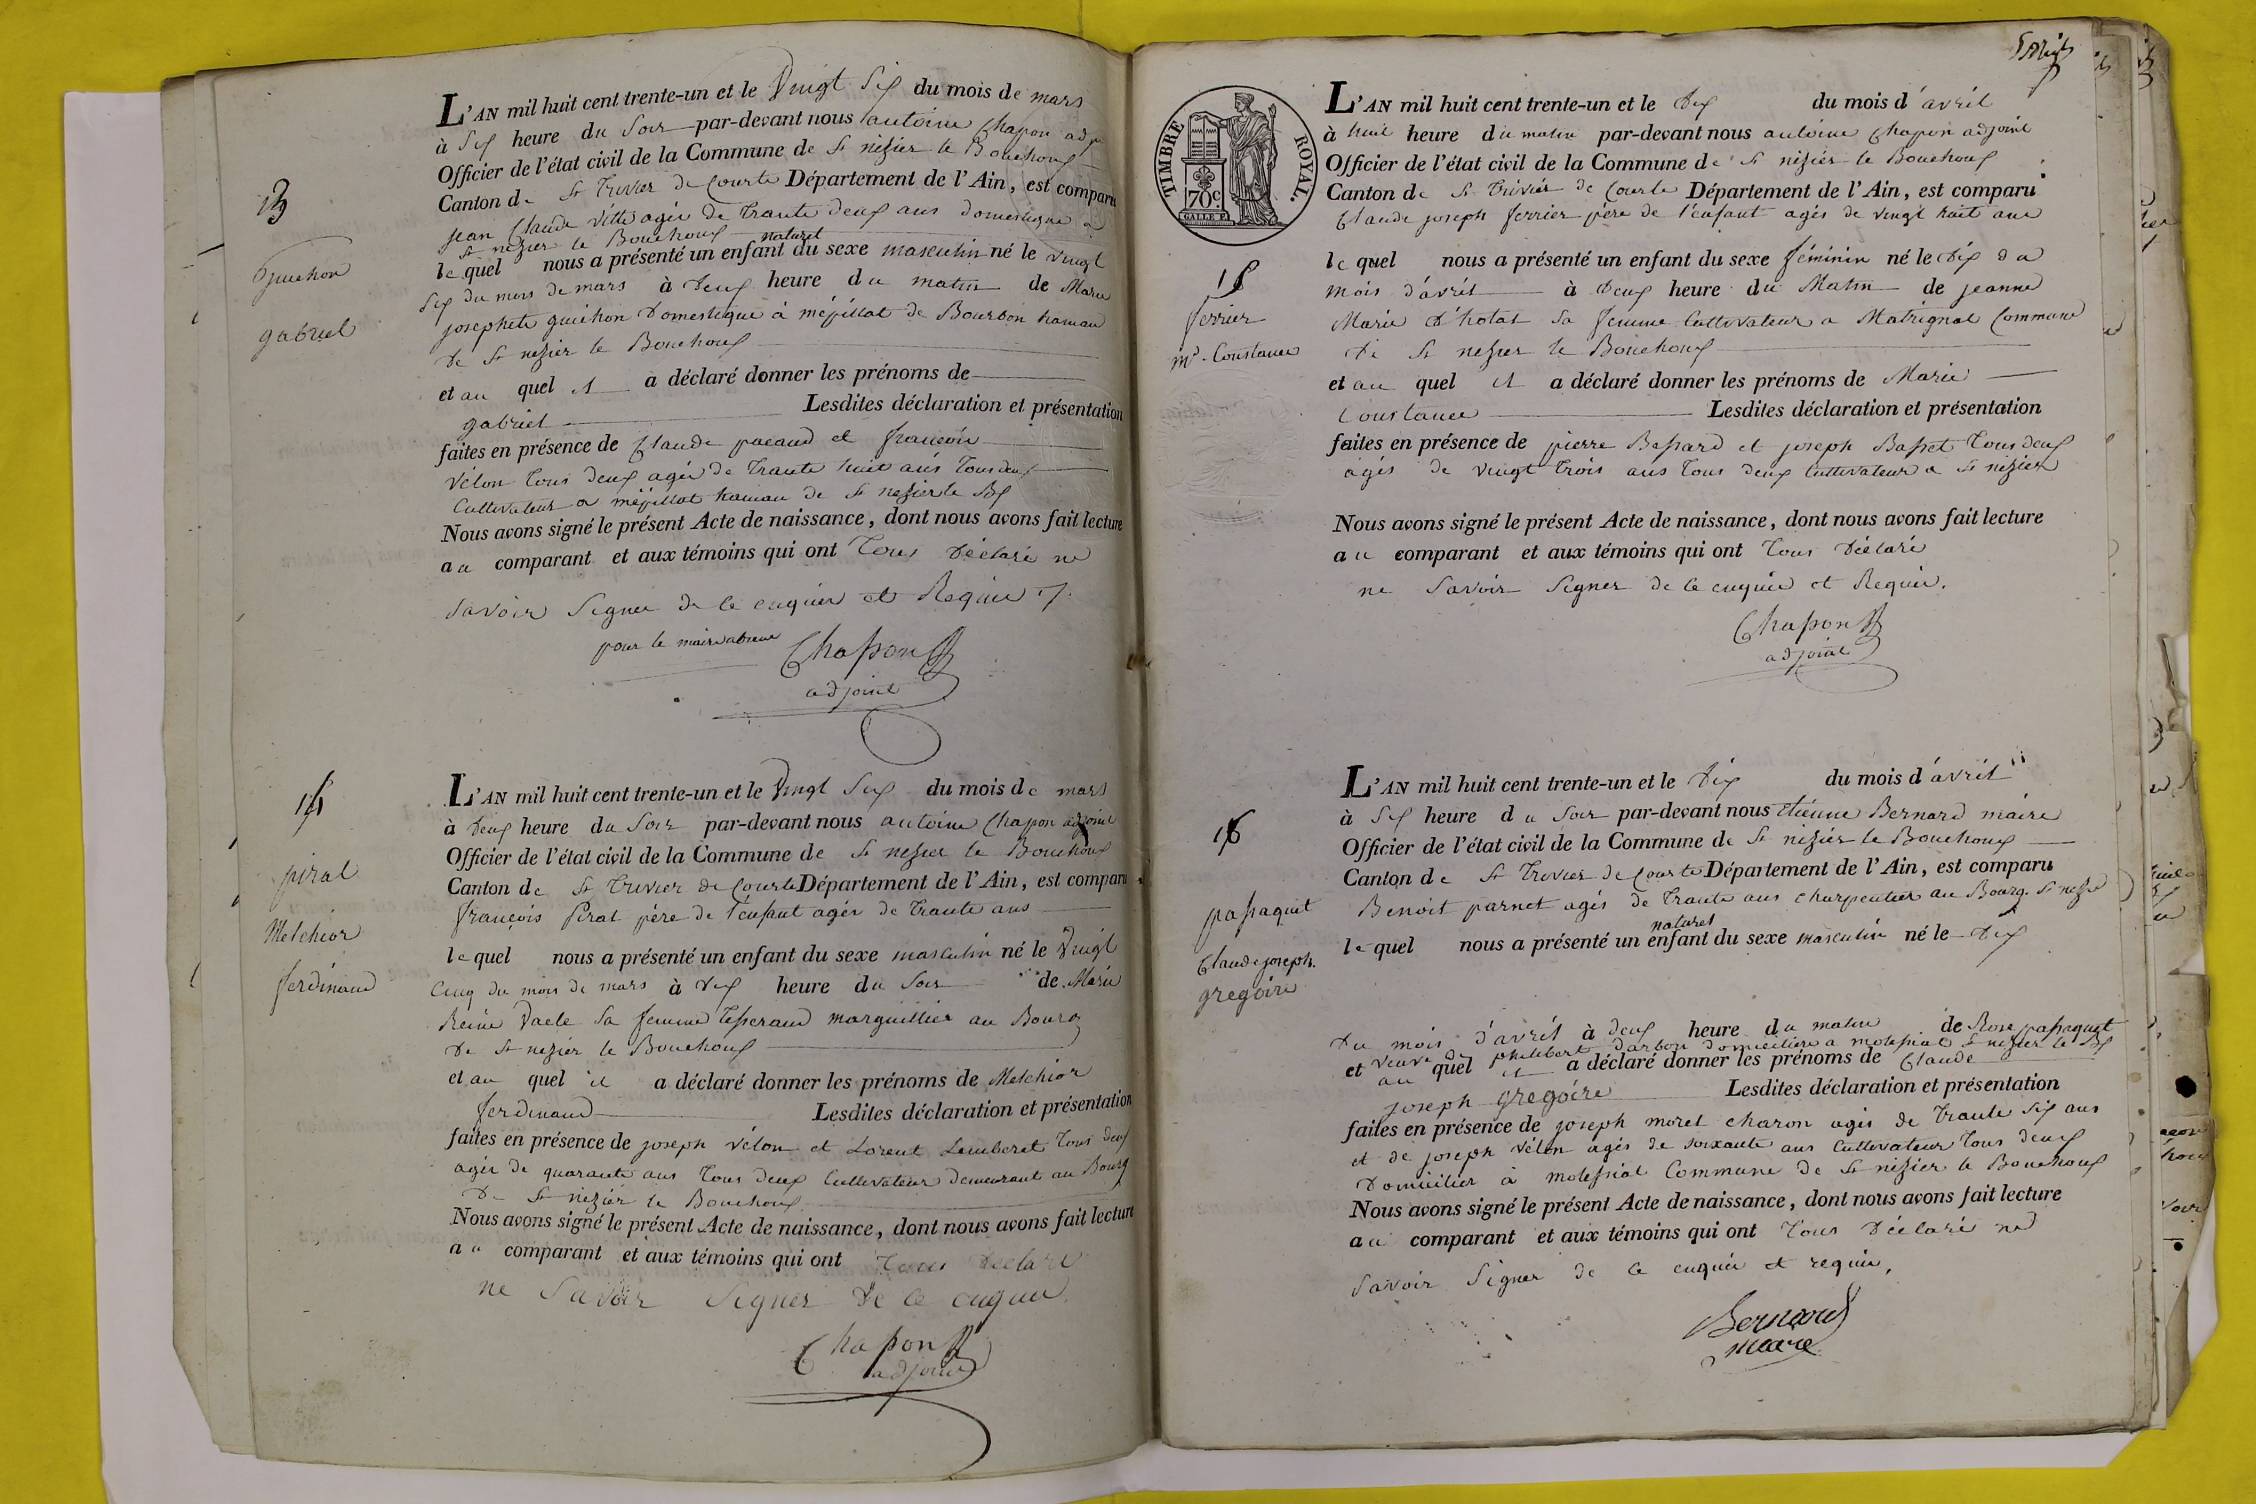 13
Guichon
gabriel
L'AN mil huit cent trente-un et le Vingt Six du mois de mars
à Six heure du Soir par-devant nous antoine Chapon adj
Officier de l'état civil de la Commune de St nizier le Bouchoux
Canton de St Trivier de Courte Département de l'Ain, est comparu
jean Claude vitte agér de Trante deux ans domestique a
St nezier le Bouchoux naturel
le quel nous a présenté un enfant du sexe masculin né le vingt
Six du mois de mars à Deux heure du matin de Marie
josephete guichon Domestique à méjillat de Bourbon hamau
de St nezier le Bouchoux
et au quel il a déclaré donner les prénoms de
gabriel Lesdites déclaration et présentation
faites en présence de Claude pacaud et françois
vélon Tous deux agér de Trante huit ans Tous deux
Cultivateur a méjillat hamau de St nezier le Bx
Nous avons signé le présent Acte de naissance, dont nous avons fait lecture
au comparant et aux témoins qui ont Tous Déclaré ne
savoir Signer de ce enquier et Requier
pour le maire Chapon
adjoint
14
piral
Melchior
ferdinand
L'AN mil huit cent trente-un et le Vingt Six du mois de mars
à Deux heure du Soir par-devant nous antoine Chapon adjoint
Officier de l'état civil de la Commune de St nezier le Bouchoux
Canton de St Trivier de Courte Département de l'Ain, est comparu
françois Pirat père de l'enfant agér de Trante ans
le quel nous a présenté un enfant du sexe masculin né le Vingt
Cinq du mois de mars à Dix heure du Soir de Marie
Reine Vacle Sa femme Tisserand marguillier au Bourg
de St nezier le Bouchoux
et au quel il a déclaré donner les prénoms de Melchior
ferdinand Lesdites déclaration et présentation
faites en présence de joseph vélon et Lorent Lemberet Tous deux
agér de quarante ans Tous deux Cultivateur demeurant au Bourg
De St nezier le Bouchoux
Nous avons signé le présent Acte de naissance, dont nous avons fait lecture
au comparant et aux témoins qui ont Tous Déclaré
ne Savoir Signer de ce enquier
Chapon
adjoint
TIMBRE ROYAL.
70c
15
ferrier
me. Constance
L'AN mil huit cent trente-un et le dix du mois d'avril
à huit heure du matin par-devant nous antoine Chapon adjoint
Officier de l'état civil de la Commune de St nizier le Bouchoux
Canton de St Trivier de Courte Département de l'Ain, est comparu
Claude joseph ferrier père de l'enfant agés de vingt huit ans
le quel nous a présenté un enfant du sexe féminin né le dix du
mois d'avril à Deux heure du Matin de jeanne
Marie D'hotal sa femme Cultivateur a Matrignat Commune
de St nezier le Bouchoux
et au quel il a déclaré donner les prénoms de Marie
Constance Lesdites déclaration et présentation
faites en présence de pierre Bassard et joseph Basset Tous deux
agés de vingt trois ans Tous deux Cultivateur a St nezier
Nous avons signé le présent Acte de naissance, dont nous avons fait lecture
au comparant et aux témoins qui ont Tous Déclaré
ne Savoir Signer de ce enquie et Requie.
Chapon
adjoint
16
passaquet
Claude joseph.
gregoire
L'AN mil huit cent trente-un et le Dix du mois d'avril
à Six heure du Soir par-devant nous étienne Bernard maire
Officier de l'état civil de la Commune de St nizier le Bouchoux
Canton de St Trivier de Courte Département de l'Ain, est comparu
Benoit parnet agés de Trante ans charpentier au Bourg. St nezie
naturel
le quel nous a présenté un enfant du sexe masculin né le Dix
Du mois d'avril à deux heure du matin de Rose passaquet
veuve de philibert Darbon domiciliere a molesriat St nezier le Bx
et au quel il a déclaré donner les prénoms de Claude
joseph gregoire Lesdites déclaration et présentation
faites en présence de joseph moret charon agés de Trante Six ans
et de joseph vélon agés de soixante ans Cultivateur Tous deux
Domicilier à molesriat Commune de St nizier le Bouchoux
Nous avons signé le présent Acte de naissance, dont nous avons fait lecture
au comparant et aux témoins qui ont Tous Déclaré ne
savoir Signer de ce enquie et requie,
Bernard
maire